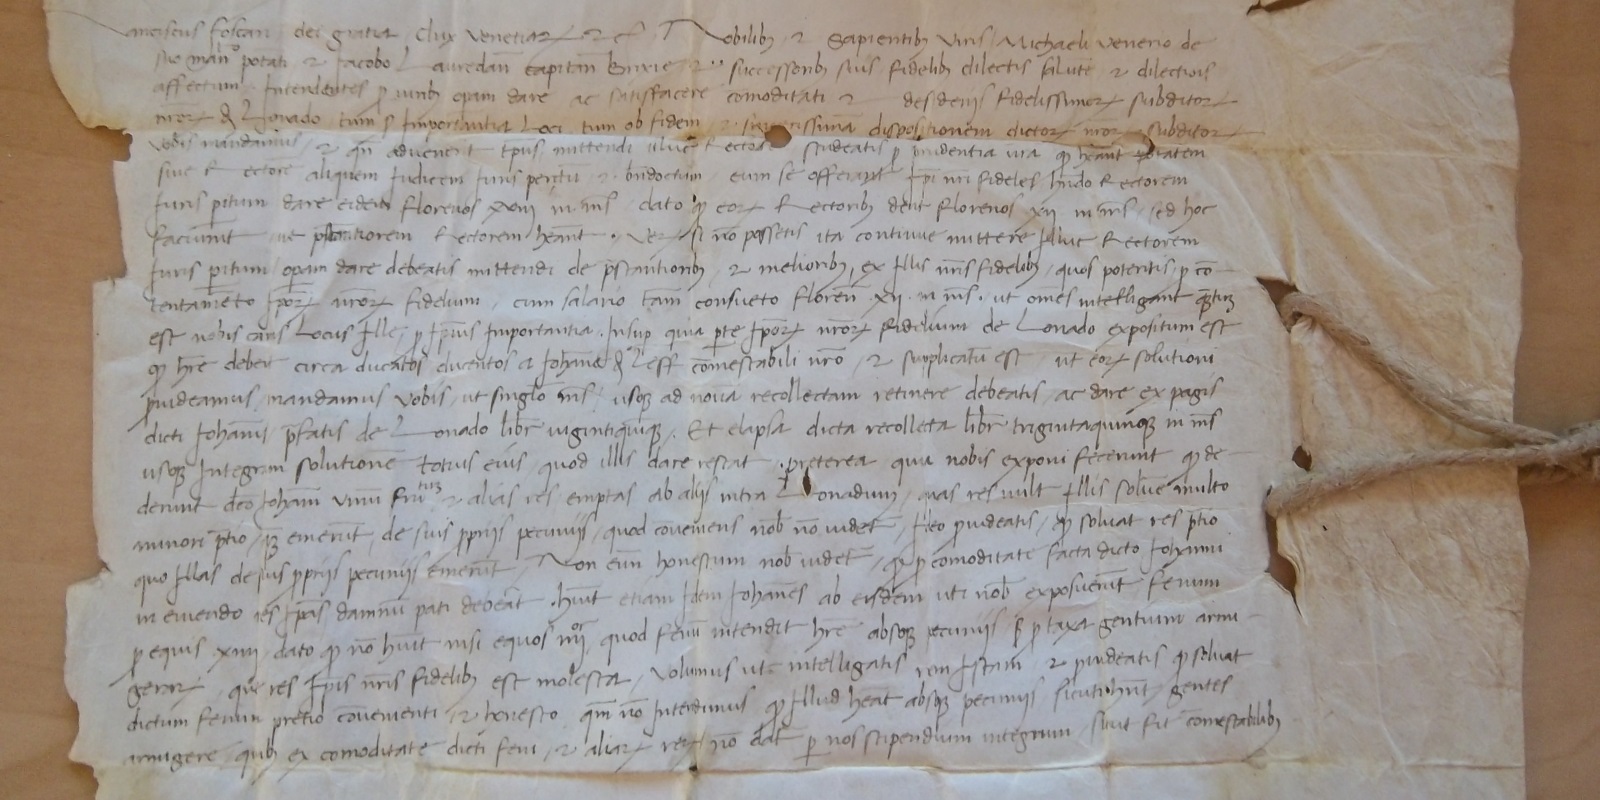 Franciscus foscari dei gratia Dux Venetiar 2 c̃ . Nobilibus 2 Sapientibus Viris Michaeli Venerio de
suo man̄to potati 2 Jacobo Lauredan̄ capitan̄ Brixie 2 successoribus suis fidelibus dilectis salute 2 dilectiōis
affectum . Intendentes p viribus opam dare ac satisfacere comoditati 2 desiderijs fidelissimor subditor
nr̄or d̄ Lonado tum p Importantia Loci tum ob fidem 2 sincerissima dispositionem dictor nr̄or subditor
Vobis mandamus 2 qn̄ aduenerit tp̄us mittendi illuc Rector studeatis p prudentia vr̄a qd heant
siue Rectorē aliquem Judicem Juris peritū 2 eum se offerant Ip̄i nr̄i fideles Rectorem
Juris peritum dare eidem florenos xviij in mn̄s dato qd eor Rectoribus dent florenos xij in mn̄s sed hoc
faciunt ut pstantiorem Rectorem heant . Ver si nō possetis ita continue mittere Illuc Rectorem
Juris peritum opam dare debeatis mittendi de pstantioribus 2 melioribus ex Illis nr̄is fidelibus quos poteritis p cō-
tentamēto Ip̄or nr̄or fidelium cum salario tam̄ consueto floren̄ xij in mn̄s . ut omēs intelligant quantū
est nobis carus Locus Ille p Ip̄ius Importantia . Insup quia parte Ip̄or nr̄or fidelium de Lonado expositum est
qd hr̄e debent circa ducatos ducentos a Johanne d̄ Leff comestabili nr̄o 2 supplicatū est ut eor solutioni
puideamus mandamus Vobis ut singlo mn̄s usq ad noua recollectam retinere debeatis ac dare ex pagis
dicti Johanis pfatis de Lonado libr̄ vigintiquiq . Et elapsa dicta recollecta libr̄ trigintaquinq in mn̄s
usq Integram solutionē totius eius quod illis dare restat . preterea quia nobis exponi fecerunt qd de-
derunt dc̄o Johani vinū frumtum 2 alias res emptas ab alijs intra Lonadum quas res vult Illis soluē multo
minori ptio qz emerūt de suis pprijs pecunijs quod coueniens nob̄ nō videt Ideo puideatis qd soluat res ptio
quo Illas de suis pprijs pecunijs emerūt . Non eni honestum nob̄ videt qd p comoditate facta dicto Johanni
in emendo res Ip̄as damnū pati debeat . Huit etiam Idem Johanes ab eisdem uti nob̄ exposuerūt fenum
p equis xiiij dato qd nō huit nisi equos iiijor quod fenū intendit hr̄e absq pecunijs p taxa gentium armi-
gerar que res Ip̄is nr̄is fidelibus est molesta . Volumus ut intelligatis rem Istam 2 puideatis qd soluat
dictum fenum pretio conuenienti 2 honesto qm̄ nō Intendimus qd Illud heat absq pecunijs sicuti hn̄t gentes
armigere quibus ex comoditate dicti feni 2 aliar rer nō dat p nos stipendium integrum sicut fit comestabilibus